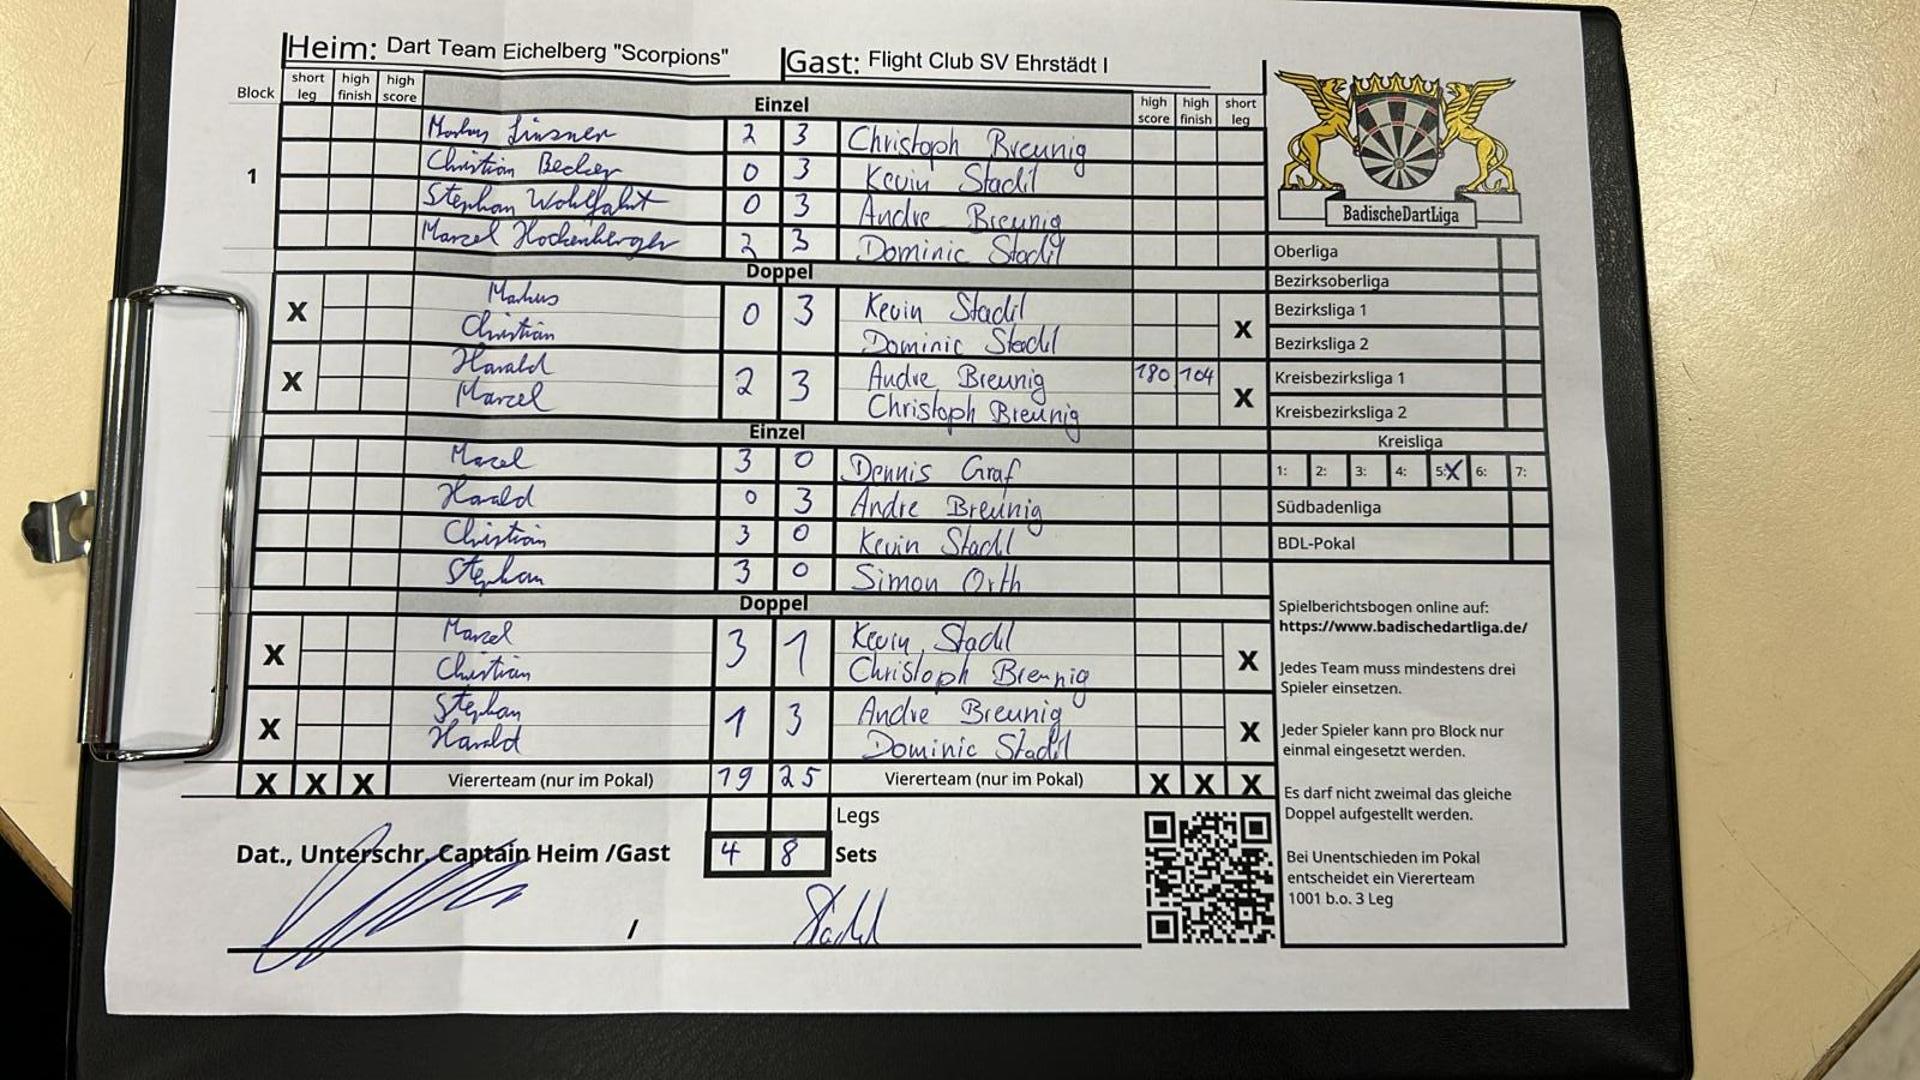 Heim: Dart Team Eichelberg "Scorpions" Gast: Flight Club SV Ehrstädt I
Block short leg high finish high score Einzel high score high finish short leg
Markus Linsner 2 3 Christoph Breunig
Christian Becker 0 3 Kevin Stadil
1
Stephan Wohlfahrt 0 3 Andre Breunig
Marcel Hockenberger 2 3 Dominic Stadil
BadischeDartLiga
Oberliga
Doppel
Bezirksoberliga
X Markus 0 3 Kevin Stadil X
Christian Dominic Stadil
Bezirksliga 1
Bezirksliga 2
X Harald 2 3 Andre Breunig 180 104 X
Marcel Christoph Breunig
Kreisbezirksliga 1
Kreisbezirksliga 2
Einzel
Kreisliga
Marcel 3 0 Dennis Graf
1: 2: 3: 4: 5:X 6: 7:
Harald 0 3 Andre Breunig
Südbadenliga
Christian 3 0 Kevin Stadil
BDL-Pokal
Stephan 3 0 Simon Orth
Doppel
X Marcel 3 1 Kevin Stadil X
Christian Christoph Breunig
X Stephan 1 3 Andre Breunig X
Harald Dominic Stadil
X X X Viererteam (nur im Pokal) 19 25 Viererteam (nur im Pokal) X X X
Legs
Dat., Unterschr. Captain Heim /Gast 4 8 Sets
/ Stadil
Spielberichtsbogen online auf:
https://www.badischedartliga.de/
Jedes Team muss mindestens drei
Spieler einsetzen.
Jeder Spieler kann pro Block nur
einmal eingesetzt werden.
Es darf nicht zweimal das gleiche
Doppel aufgestellt werden.
Bei Unentschieden im Pokal
entscheidet ein Viererteam
1001 b.o. 3 Leg